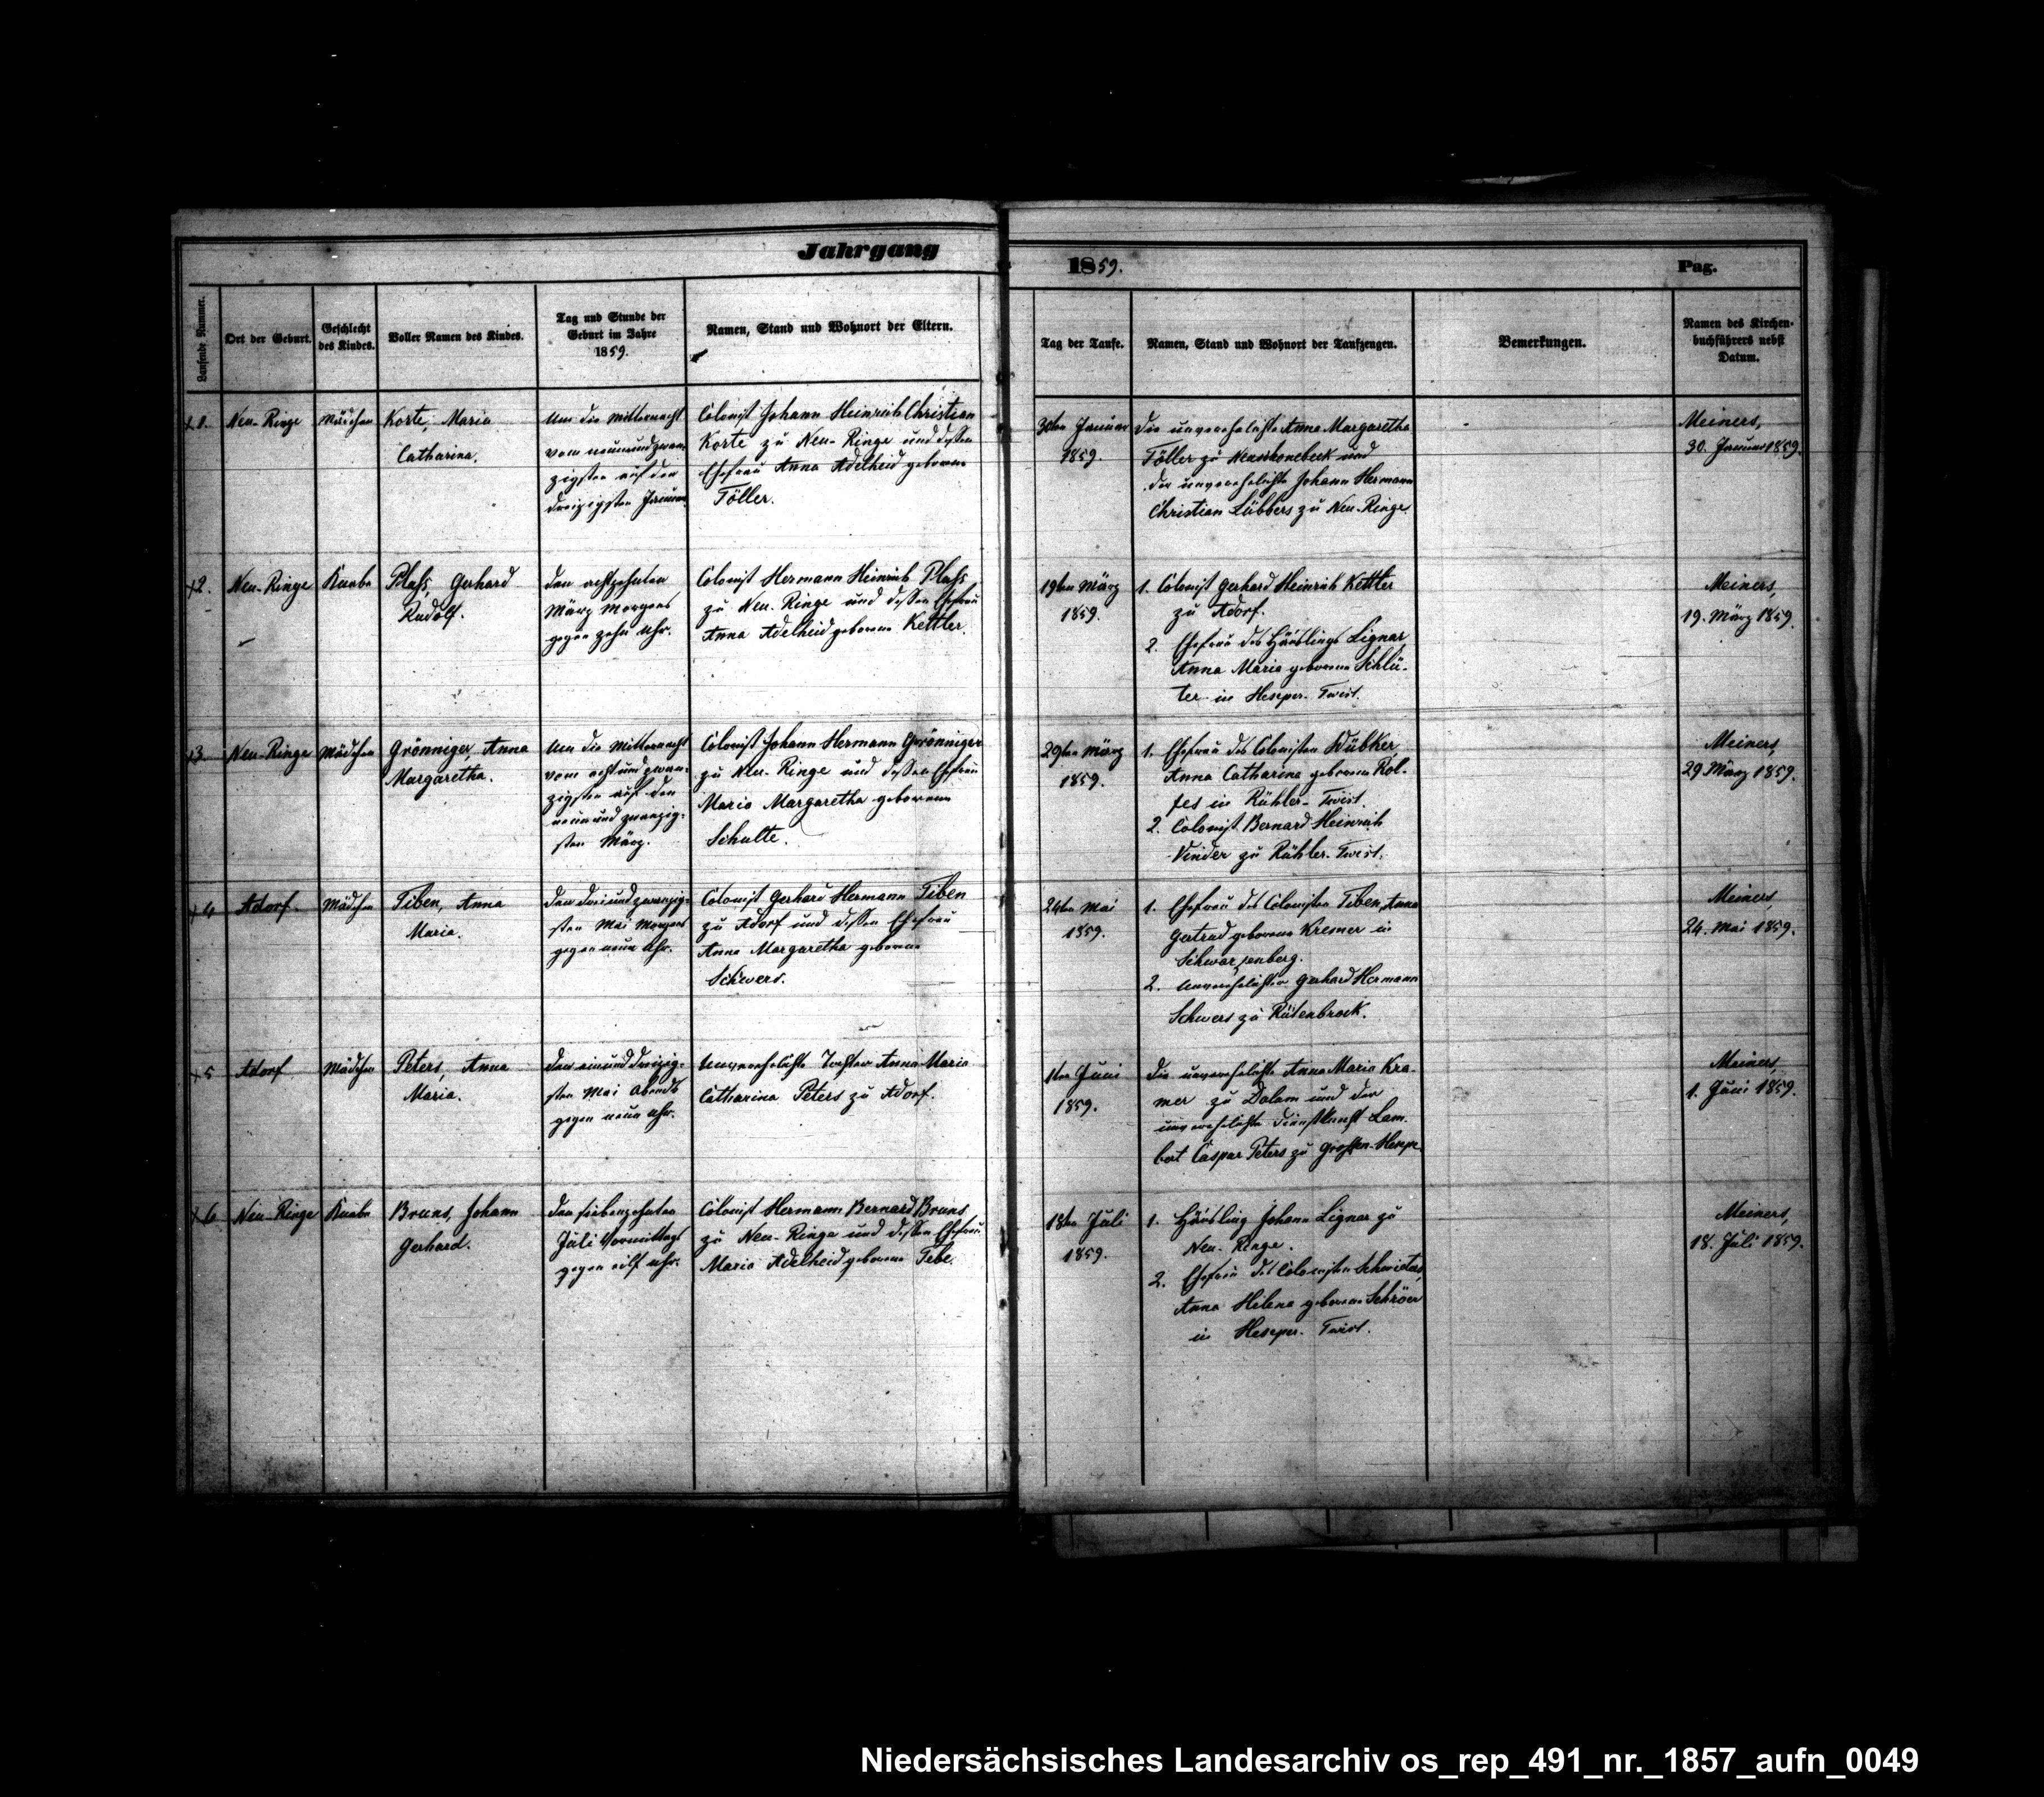 Jahrgang
1859.
Pag.
Laufende Nummer.
Ort der Geburt.
Geschlecht
des Kindes.
Voller Namen des Kindes.
Tag und Stunde der
Geburt im Jahre
1859.
Namen, Stand und Wohnort der Eltern.
Tag der Taufe.
Namen, Stand und Wohnort der Taufzeugen.
Bemerkungen.
Namen des Kirchen-
buchführers nebst
Datum.
1.
Neu-Ringe
Mädchen
Korte, Maria
Catharina.
Um die Mitternacht
vom neunundzwan-
zigsten auf den
dreizigsten Januar
Colonist Johann Heinrich Christian
Korte zu Neu-Ringe und dessen
Ehefrau Anna Adelheid geborene
Töller.
30ten Januar
1859.
Die unverehelichte Anna Margaretha
Töller zu Neuschonebeck und
der unverehelichte Johann Hermann
Christian Lübbers zu Neu-Ringe.
Meiners,
30. Januar 1859.
2.
Neu-Ringe
Knabe
Plaß, Gerhard
Rudolf.
Den achtzehnten
März Morgens
gegen zehn Uhr.
Colonist Hermann Heinrich Plaß
zu Neu-Ringe und dessen Ehefrau
Anna Adelheid geborene Kettler.
19ten März
1859.
1. Colonist Gerhard Heinrich Kettler
zu Adorf.
2. Ehefrau des Häuslings Lignar,
Anna Maria geborene Schlü-
ter in Heseper-Twist.
Meiners,
19. März 1859.
3.
Neu-Ringe
Mädchen
Grönniger, Anna
Margaretha.
Um die Mitternacht
vom achtundzwan-
zigsten auf den
neunundzwanzig-
sten März.
Colonist Johann Hermann Grönniger
zu Neu-Ringe und dessen Ehefrau
Maria Margaretha geborene
Schulte.
29ten März
1859.
1. Ehefrau des Colonisten Wübker,
Anna Catharina geborene Rol-
fes in Rühler-Twist.
2. Colonist Bernard Heinrich
zu Rühler-Twist.
Meiners,
29. März 1859.
4
Adorf.
Mädchen
Tiben, Anna
Maria.
Den dreiundzwanzig-
sten Mai Morgens
gegen neun Uhr.
Colonist Gerhard Hermann Tiben
zu Adorf und dessen Ehefrau
Anna Margaretha geborene
Schwers.
24ten Mai
1859.
1. Ehefrau des Colonisten Tiben, Anna
Gertrud geborene Kremer in
Schwarzenberg.
2. Unverehelichter Gerhard Hermann
Schwers zu Rütenbrock.
Meiners,
24. Mai 1859.
5
Adorf
Mädchen
Peters, Anna
Maria.
Den einunddreizig-
sten Mai Abends
gegen neun Uhr.
Unverehelichte Tochter Anna Maria
Catharina Peters zu Adorf.
1ten Juni
1859.
Die unverehelichte Anna Maria Kra-
mer zu Dalum und der
unverehelichte Dienstknecht Lam-
bert Caspar Peters zu Großen-Hesepe.
Meiners,
1. Juni 1859.
6
Neu-Ringe
Knabe
Bruns, Johann
Gerhard.
Den siebenzehnten
Juli Vormittags
gegen eilf Uhr.
Colonist Hermann Bernard Bruns
zu Neu-Ringe und dessen Ehefrau
Maria Adelheid geborene Tebe.
18ten Juli
1859.
1. Häusling Johann Lignar zu
Neu-Ringe.
2. Ehefrau des Colonisten Schwieters,
Anna Helena geborene Schröer
in Heseper-Twist.
Meiners,
18. Juli 1859.
Niedersächsisches Landesarchiv os_rep_491_nr._1857_aufn_0049